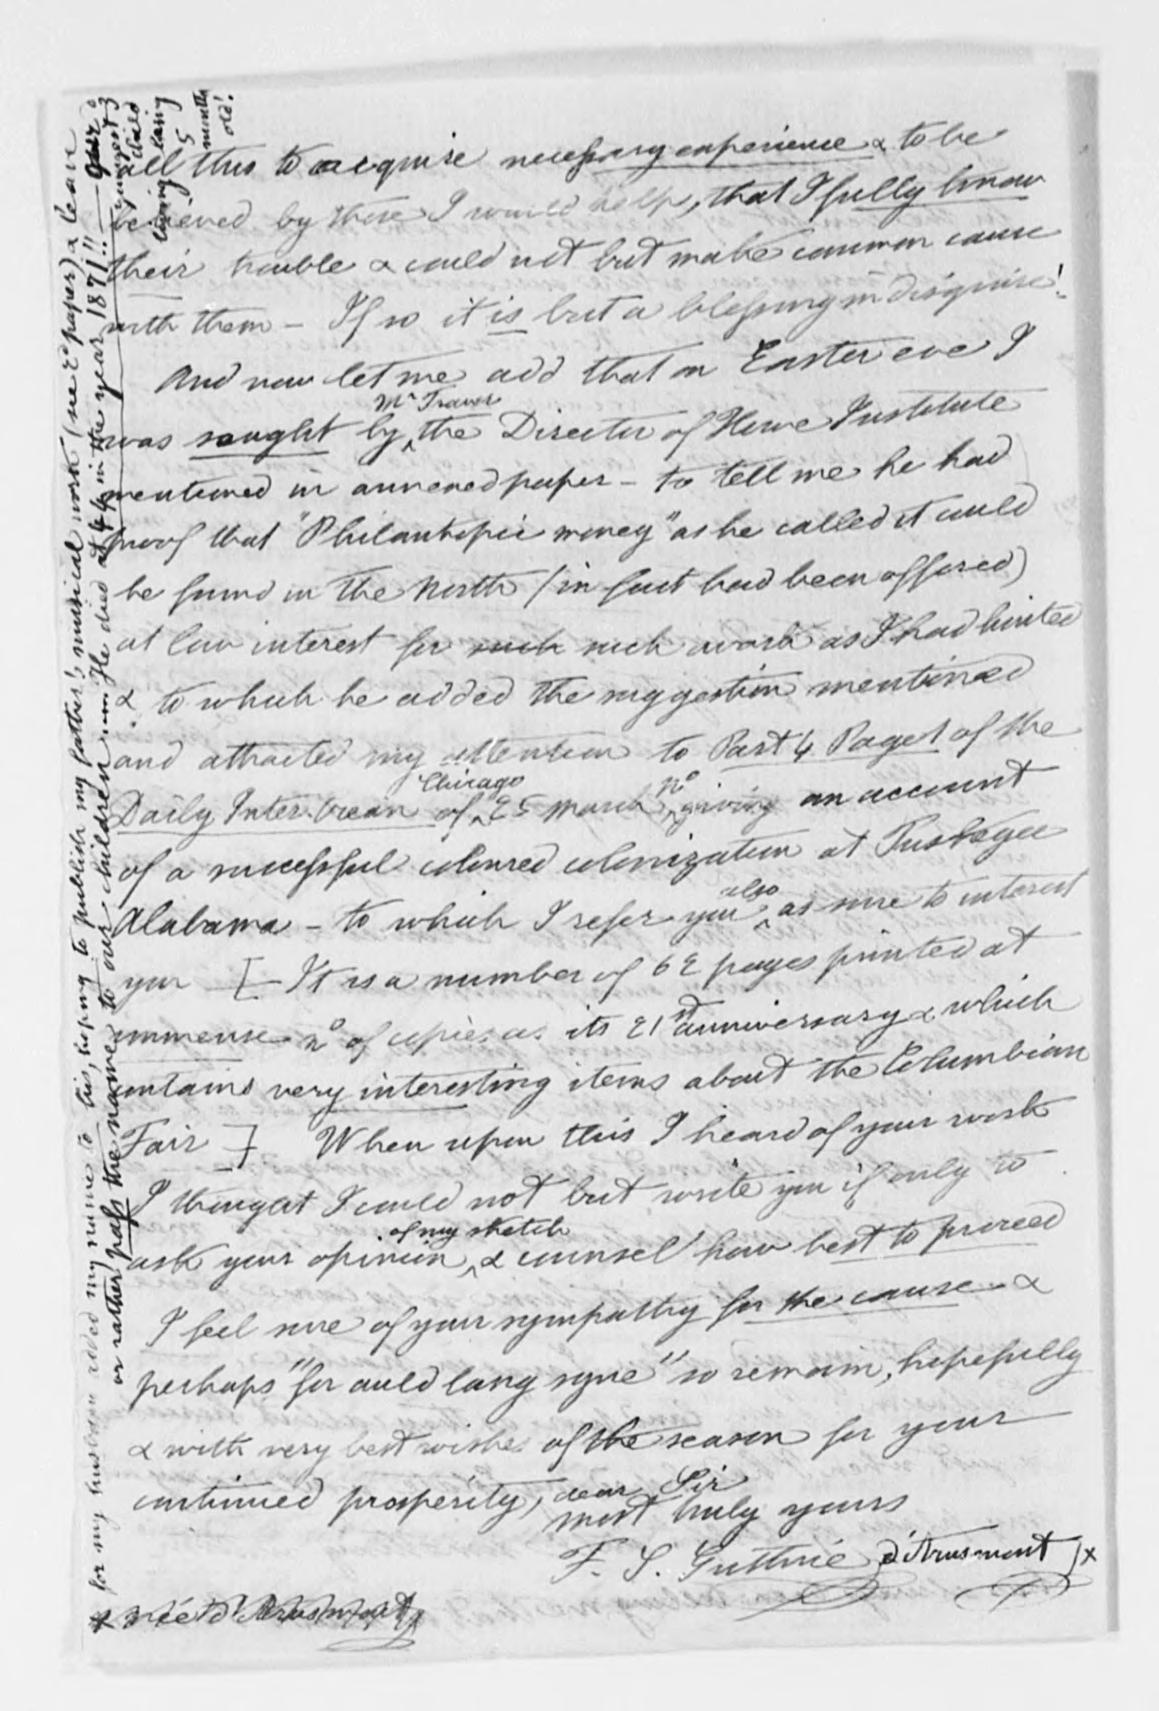 all this to acquire necessary experience & to be
believed by those I would help, that I fully know
their trouble & could not but make common cause
with them – If so it is but a blessing in disguise!
And now let me add that on Easter eve I
was sought by ^Mr Traver the Director of Howe Institute
mentioned in annexed paper – to tell me he had
proof that "Philantopic money" as he called it could
be found in the North (in fact had been offered)
at low interest for such such work as I had hinted
& to which he added the suggestion mentioned
and attracted my attention to Part 4 Page 1 of the
Daily Inter. Ocean of ^Chicago 25 March ^no giving an account
of a successful coloured colonization at Tuskegee
Alabama – to which I refer you ^also as sure to interest
you [– It is a number of 62 pages printed at
immense no of copies as its 21st anniversary & which
contains very interesting items about the Columbian
Fair] When upon this I heard of your work
I thought I could not but write you if only to
ask your opinion ^of my sketch & counsel how best to proceed
I feel sure of your sympathy for the cause – &
perhaps "for auld lang syne" so remain, hopefully
& with very best wishes of the season for your
continued prosperity, dear Sir
most truly yours
F. S. Guthrie d'Arusmont ] x
x née d'Arusmont
x for my husband added my name to his, hoping to publish my father's musical work (see 2d paper) & leave
or rather pass the name to our children – He died at in the year 1871!! – our
youngest
child
living being
5
months
old!